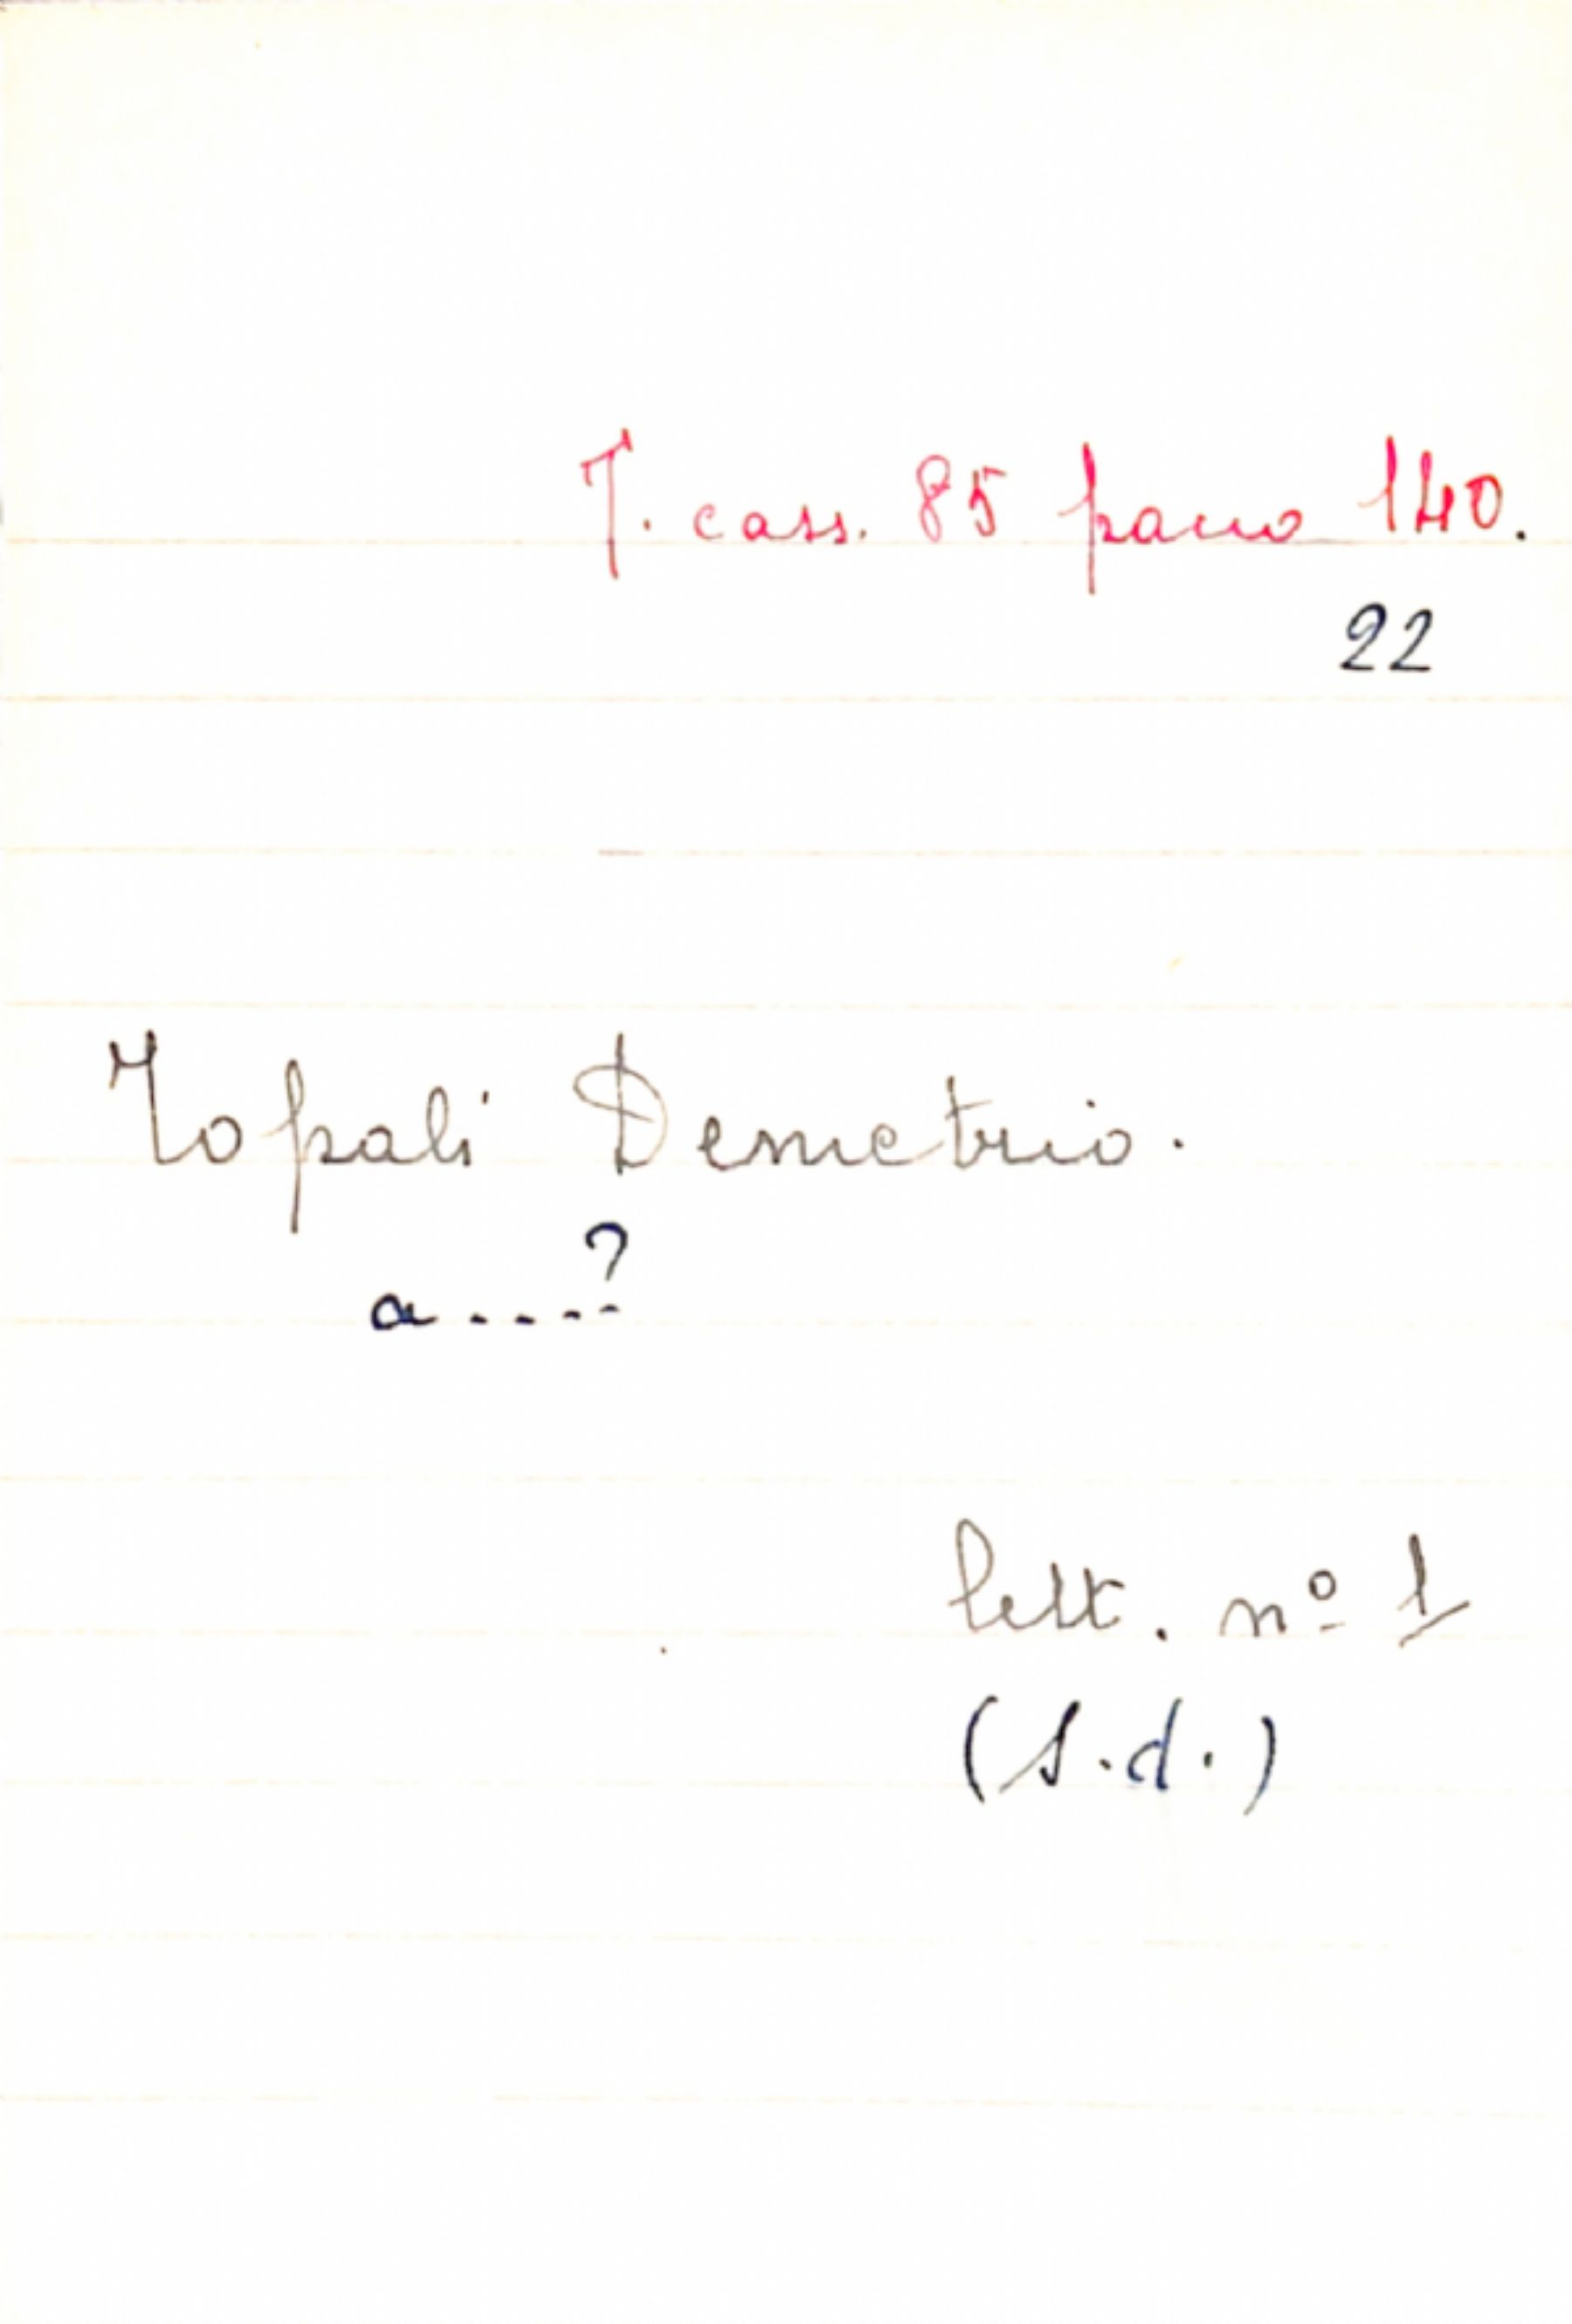 T. cass. 85 pacco 140.
22
Topali Demetrio.
a....?
lett. nº 1
(s.d.)